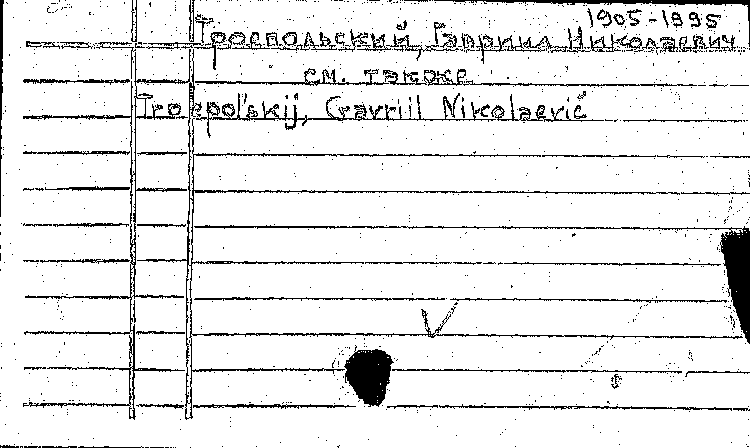 1905-1995
Троепольский, Гавриил Николаевич
см. также
Troepol'skij, Gavriil Nikolaevič